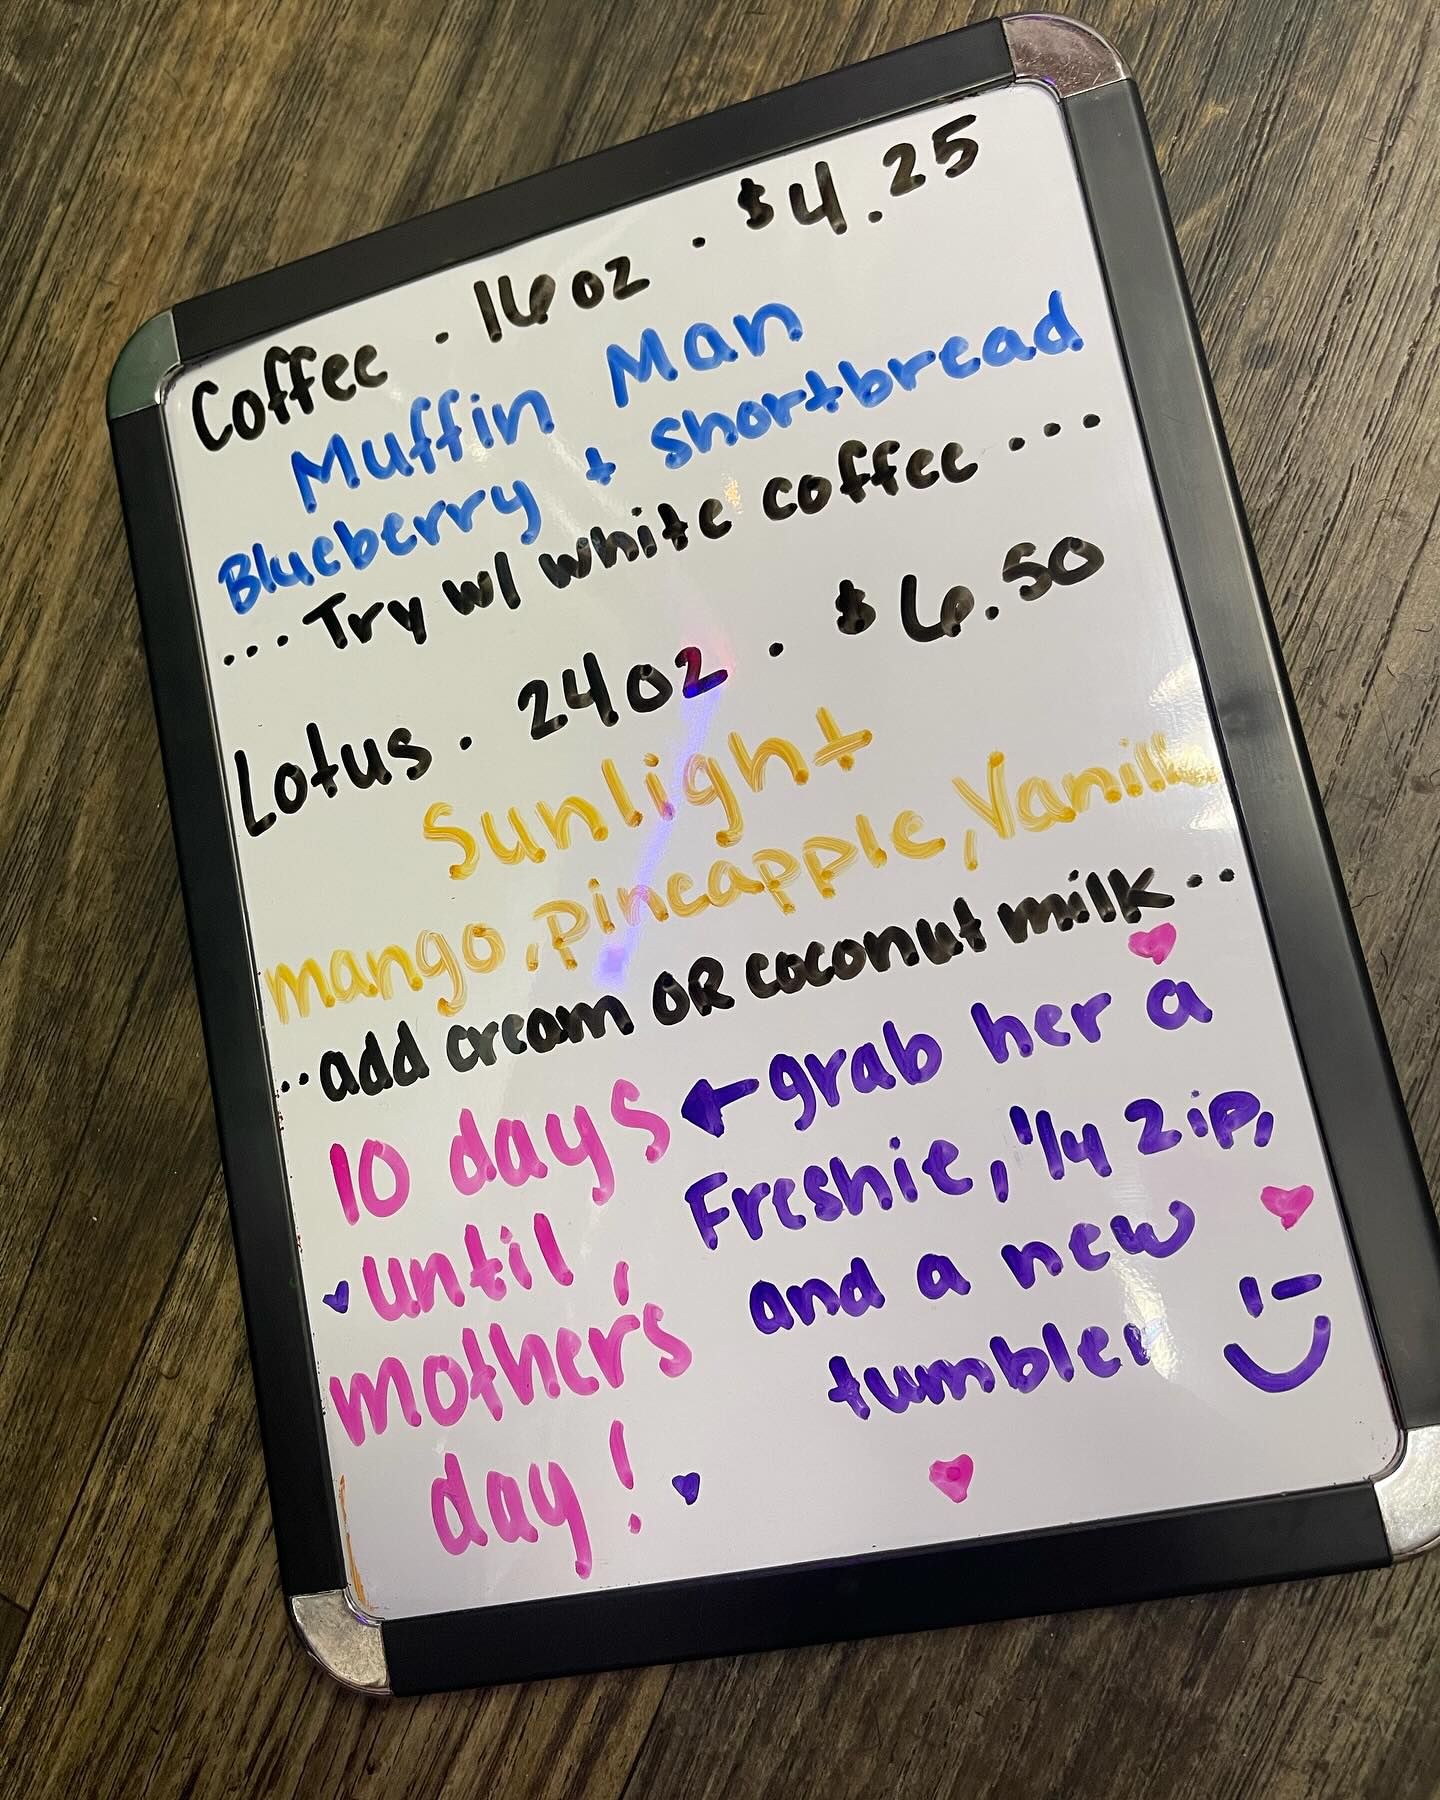 Coffee . 16 oz . $4.25
Muffin Man
Blueberry + shortbread
... Try w/ white coffee ...
Lotus . 24oz . $6.50
Sunlight
mango, pineapple, Vanilla
.. add cream OR coconut milk ..
10 days
until
mother's
day!
← grab her a
Freshie, 1/4 zip,
and a new
tumbler